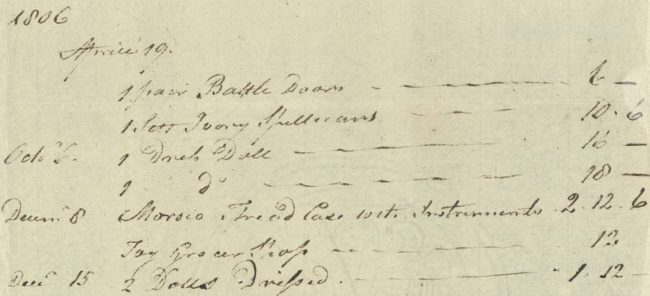 1806
April 19.
1 pair Battle Doors - - - 6 -
1 Sett Ivory Spillicans - - 10 . 6
Octr 6. 1 Dress Doll - - - 16 -
1 do - - - 18 -
Decemr 8 Moroco Thread Case with Instruments 2 . 12 . 6
Toy Grocer Shop - - - 12
Decr 15 2 Dolls Dressed. - - - 1 . 12 -